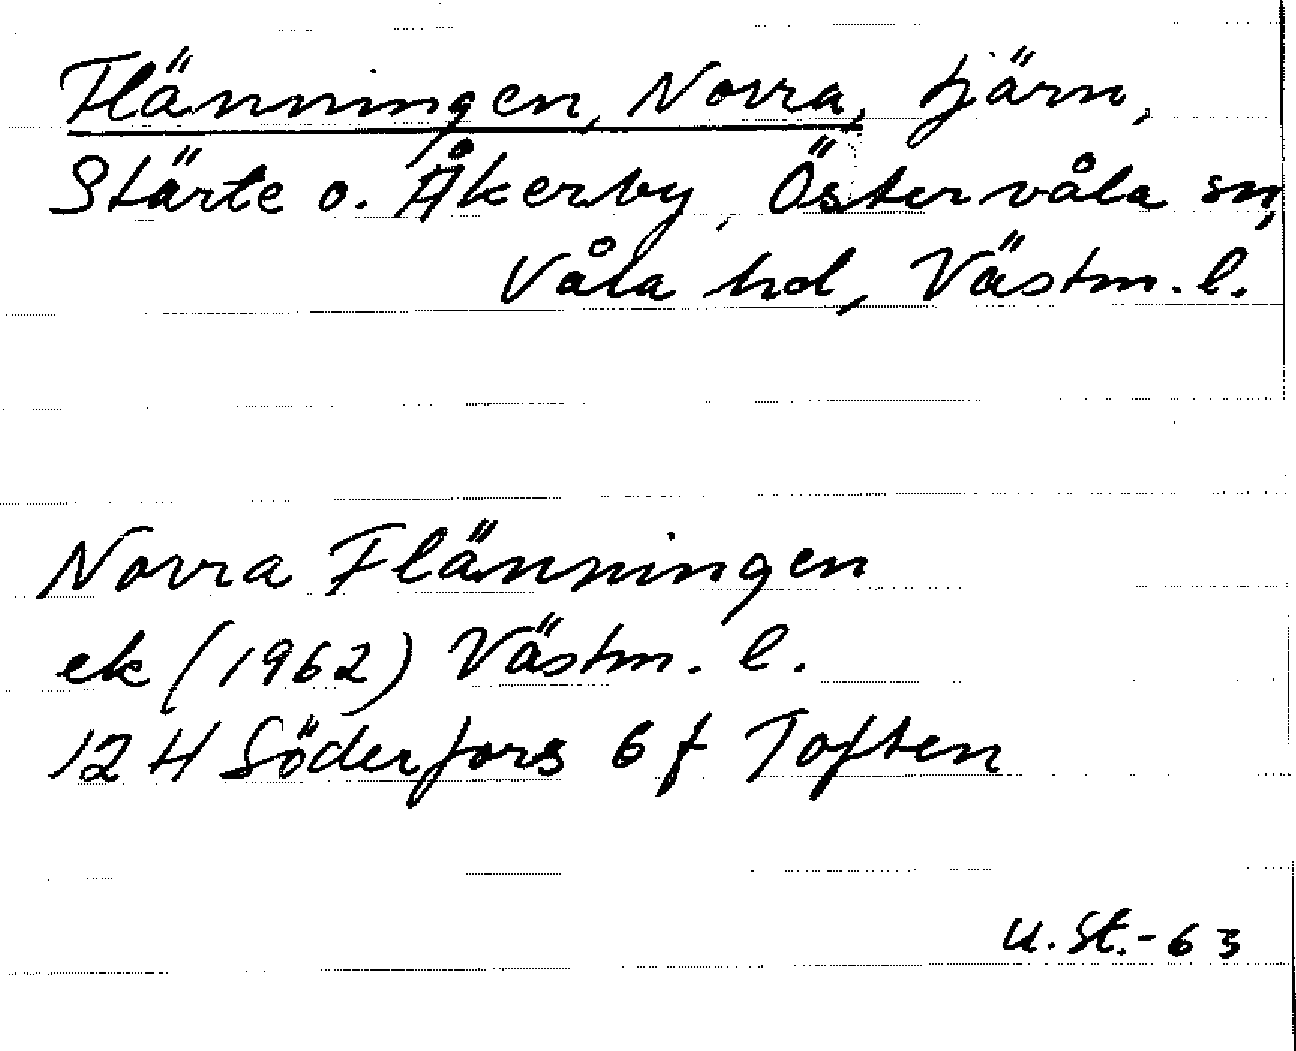 Flänningen, Norra, tjärn,
Stärte o. Åkerby, Östervåla sn,
Våla hd, Västm. l.
Norra Flänningen
ek (1962) Västm. l.
12 H Söderfors 6 f Toften
U. St. - 63